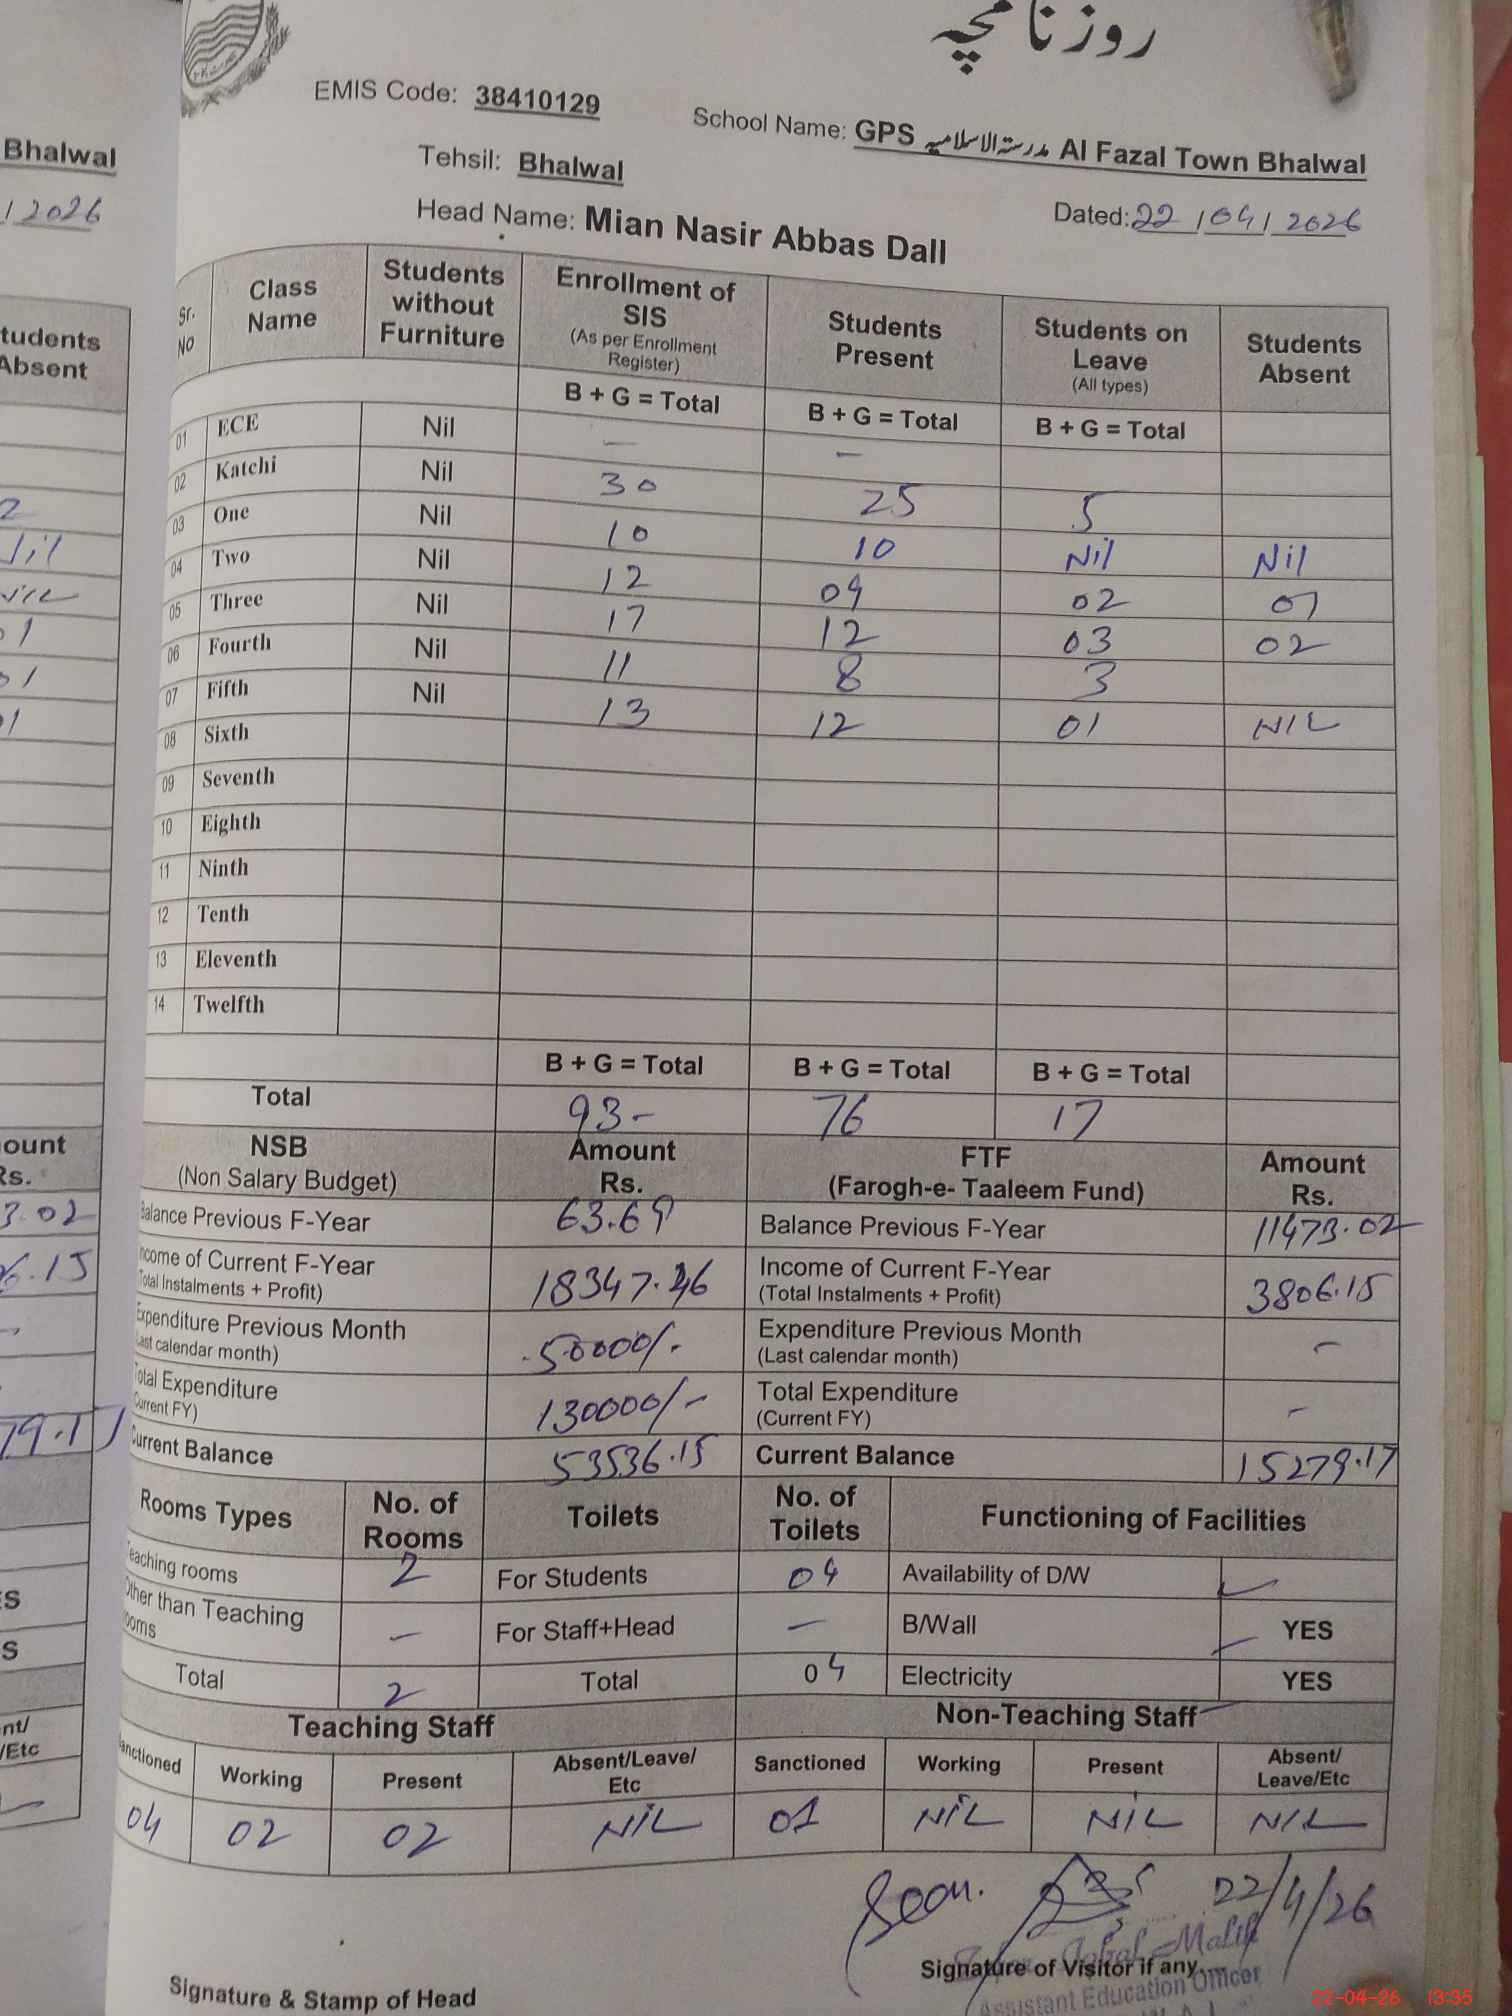 روزنامچہ
EMIS Code: 38410129
School Name: GPS مدرستہ الاسلامیہ Al Fazal Town Bhalwal
Tehsil: Bhalwal
Head Name: Mian Nasir Abbas Dall
Dated: 22/04/2026
Sr. No Class Name Students without Furniture Enrollment of SIS (As per Enrollment Register) Students Present Students on Leave (All types) Students Absent
B + G = Total B + G = Total B + G = Total
01 ECE Nil — –
02 Katchi Nil 30 25 5
03 One Nil 10 10 Nil Nil
04 Two Nil 12 09 02 01
05 Three Nil 17 12 03 02
06 Fourth Nil 11 8 3
07 Fifth Nil 13 12 01 NIL
08 Sixth
09 Seventh
10 Eighth
11 Ninth
12 Tenth
13 Eleventh
14 Twelfth
B + G = Total B + G = Total B + G = Total
Total 93- 76 17
NSB (Non Salary Budget) Amount Rs. FTF (Farogh-e- Taaleem Fund) Amount Rs.
Balance Previous F-Year 63.69 Balance Previous F-Year 11473.02
Income of Current F-Year (Total Instalments + Profit) 18347.46 Income of Current F-Year (Total Instalments + Profit) 3806.15
Expenditure Previous Month (Last calendar month) 50000/- Expenditure Previous Month (Last calendar month) –
Total Expenditure (Current FY) 130000/- Total Expenditure (Current FY) –
Current Balance 53536.15 Current Balance 15279.17
Rooms Types No. of Rooms Toilets No. of Toilets Functioning of Facilities
Teaching rooms 2 For Students 04 Availability of D/W ✓
Other than Teaching rooms – For Staff+Head – B/Wall YES
Total 2 Total 04 Electricity YES
Teaching Staff Non-Teaching Staff
Sanctioned Working Present Absent/Leave/Etc Sanctioned Working Present Absent/Leave/Etc
04 02 02 NIL 01 NIL NIL NIL
Seen. 22/4/26
Iqbal Malik
Signature of Visitor if any
Assistant Education Officer
Signature & Stamp of Head
22-04-26 13:35
Bhalwal
/2026